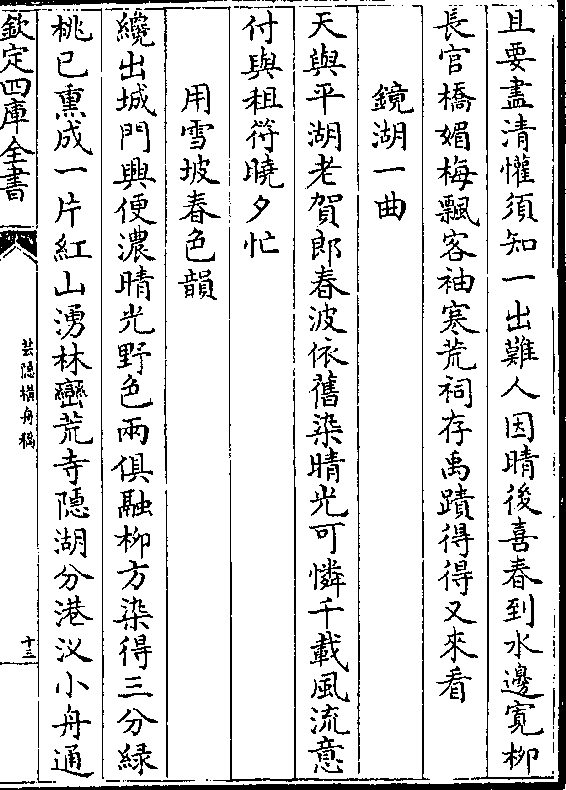 且要盡清懽須知一出難人因晴後喜春到水邊寛柳
長官橋媚梅飄客袖寒荒祠存禹蹟得得又來看
鏡湖一曲
天與平湖老賀郎春波依舊染晴光可憐千載風流意
付與租符曉夕忙
用雪坡春色韻
纔出城門興便濃晴光野色兩俱融柳方染得三分緑
桃已熏成一片紅山湧林巒荒寺隠湖分港汊小舟通
欽定四庫全書
芸隠横舟稿
十三